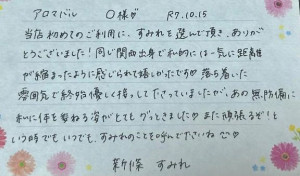 アロマバル 〇様♡ R7.10.15
当店初めてのご利用に、すみれを選んで頂き、ありが
とうございました!同じ関西出身で私的には一気に距離
が縮まったように感じられて嬉しかったです♡落ち着いた
雰囲気で終始優しく接して下さっていましたが、あの無防備に
私に体を委ねる姿がとてもグッときました♡また頑張るぞ!と
いう時でもいつでも、すみれのことを呼んで下さいね♡
新條 すみれ